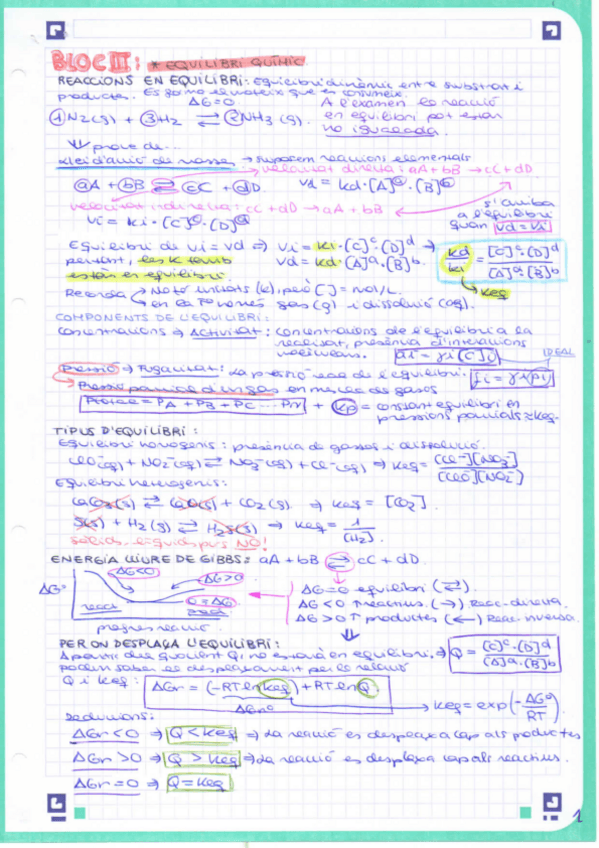 BLOC III: * EQUILIBRI QUÍMIC
REACCIONS EN EQUILIBRI: Equilibri dinàmic entre substrat i
productes. Es forma el mateix que es consumeix.
ΔG=0. A l'examen la reacció
① N2(g) + ③ H2 ⇌ ② NH3 (g). en equilibri pot estar
no igualada.
⇓ prové de...
Llei d'acció de masses → suposem reaccions elementals
velocitat directa: aA + bB → cC + dD.
aA + bB ⇌ cC + dD. Vd = Kd · [A]^a · [B]^b
velocitat indirecta: cC + dD → aA + bB
s'arriba
a l'equilibri
quan Vd = Vi
Vi = Ki · [C]^c · [D]^d
Equilibri de Vi = Vd ⇒ Vi = Ki · [C]^c · [D]^d ⇒ Kd/Ki = [C]^c · [D]^d / [A]^a · [B]^b
per tant, les K també Vd = Kd · [A]^a · [B]^b
estàn en equilibri. Keq
Recorda → No té unitats (K), però [ ] = mol/L.
→ en la només gas (g) i dissolució (aq).
COMPONENTS DE L'EQUILIBRI:
Concentracions ⇒ Activitat: concentracions de l'equilibri a la
realitat, presència d'interaccions
moleculars. ai = γi [C]i IDEAL
Pressió ⇒ Fugacitat: La pressió real de l'equilibri. fi = γi (pi)
Pressió parcial d'un gas en mescla de gasos
Ptotal = PA + PB + PC ... Pn + Kp = constant equilibri en
pressions parcials ≈ Keq.
TIPUS D'EQUILIBRI:
Equilibri homogenis: presència de gasos i dissolució.
ClO⁻(aq) + NO2⁻(aq) ⇌ NO3⁻(aq) + Cl⁻(aq) ⇒ Keq = [Cl⁻][NO3⁻] / [ClO⁻][NO2⁻]
Equilibri heterogenis:
CaCO3(s) ⇌ CaO(s) + CO2(g) ⇒ Keq = [CO2].
S(s) + H2(g) ⇌ H2S(g) ⇒ Keq = 1/[H2]
sòlids, líquids purs NO!
ENERGIA LLIURE DE GIBBS: aA + bB ⇌ cC + dD.
ΔG<0 ΔG>0
ΔG° ΔG=0 equilibri (⇌)
react 0=ΔG ΔG<0 ↑ reactius (→) Reac. directa.
ΔG>0 ↑ productes (←) Reac. inversa.
progrés reacció
PER ON DESPLAÇA L'EQUILIBRI:
A partir del quocient Q, no estarà en equilibri. ⇒ Q = [C]^c · [D]^d / [A]^a · [B]^b
podem saber el desplaçament per la relació
Q i Keq: ΔGr = (-RT ln Keq) + RT ln Q
ΔGr° Keq = exp(-ΔG°/RT)
Deduccions:
ΔGr<0 ⇒ Q < Keq ⇒ La reacció es desplaça cap als productes
ΔGr>0 ⇒ Q > Keq ⇒ La reacció es desplaça cap als reactius.
ΔGr=0 ⇒ Q = Keq
1